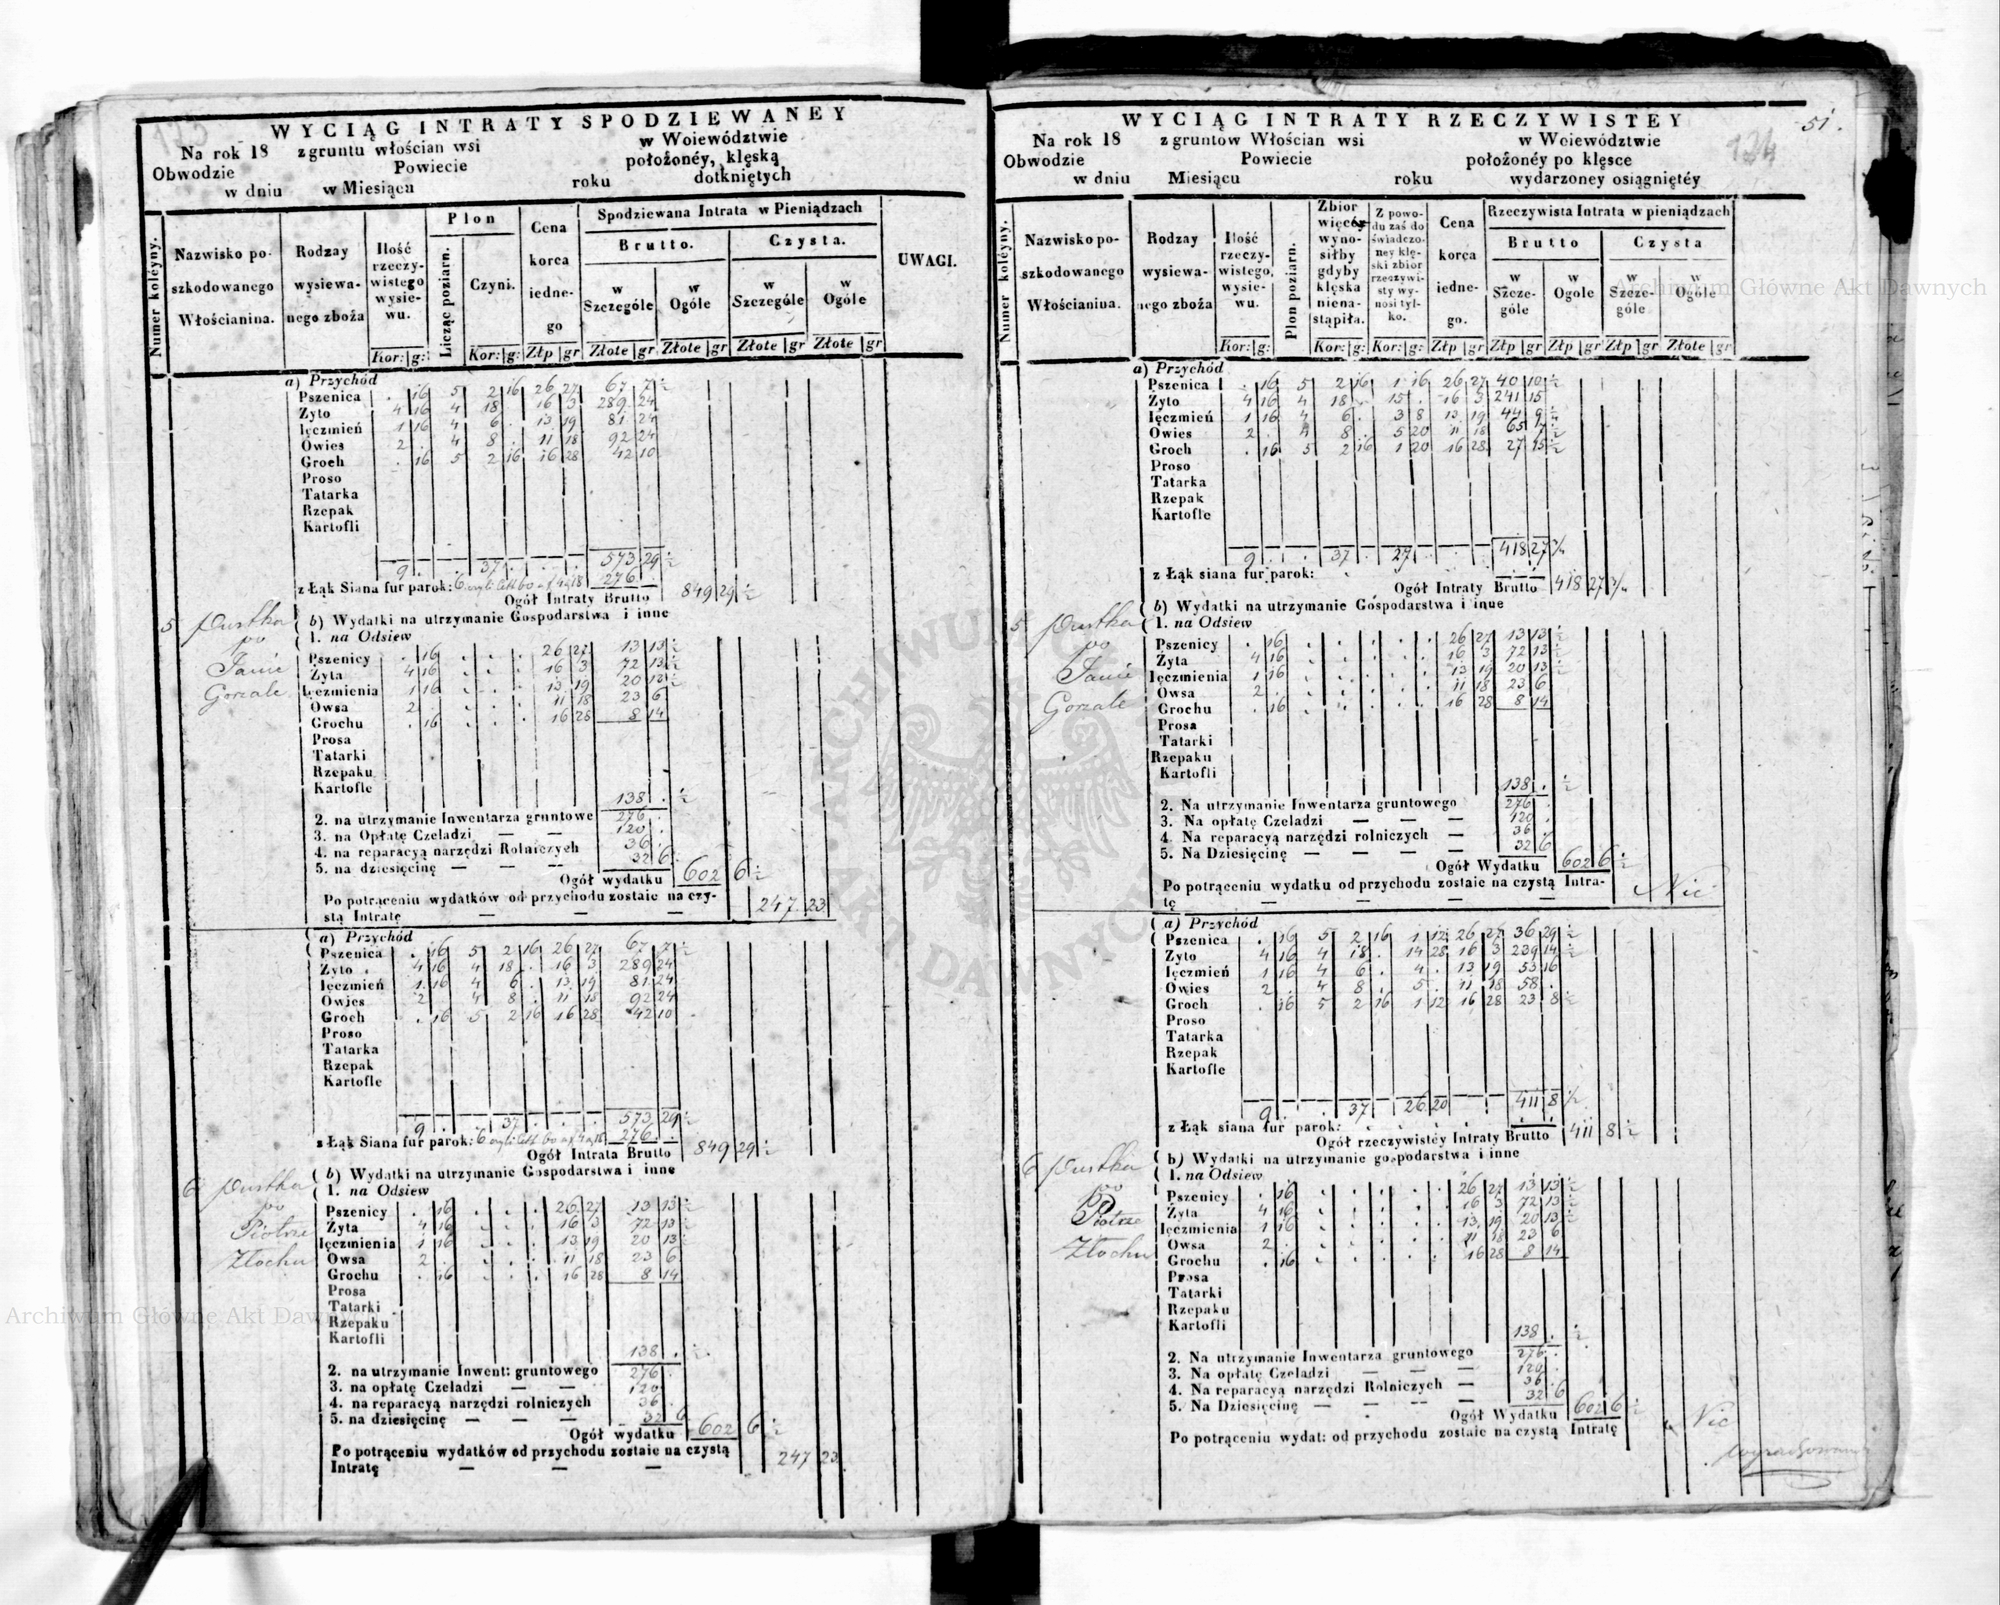 WYCIĄG INTRATY SPODZIEWANEY
Na rok 18 z gruntu włościan wsi w Woiewództwie
Obwodzie Powiecie położonéy, klęską
w dniu w Miesiącu roku dotkniętych
Numer koléyny.
Nazwisko poszkodowanego Włościanina.
Rodzay wysiewanego zboża
Ilość rzeczywistego wysiewu.
Plon
Licząc poziarn.
Czyni.
Cena korca iednego
Spodziewana Intrata w Pieniądzach
Brutto. Czysta.
w Szczególe w Ogóle w Szczególe w Ogóle
UWAGI.
Kor: g: Kor: g: Złp gr Złote gr Złote gr Złote gr Złote gr
a) Przychód
Pszenica . 16 5 2 16 26 27 67 7 ½
Zyto 4 16 4 18 . 16 3 289 24
Ięczmień 1 16 4 6 . 13 19 81 24
Owies 2 . 4 8 . 11 18 92 24
Groch . 16 5 2 16 16 28 42 10
Proso
Tatarka
Rzepak
Kartofli
9 . . 37 . . . 573 29 ½
z Łąk Siana fur parok: 6 276
Ogół Intraty Brutto 849 29 ½
5 Pustka po Janie Gorzale
b) Wydatki na utrzymanie Gospodarstwa i inne
1. na Odsiew
Pszenicy . 16 . . . 26 27 13 13 ½
Żyta 4 16 . . . 16 3 72 13 ½
Ięczmienia 1 16 . . . 13 19 20 13 ½
Owsa 2 . . . . 11 18 23 6
Grochu . 16 . . . 16 28 8 14
Prosa
Tatarki
Rzepaku
Kartofle
138 . ½
2. na utrzymanie Inwentarza gruntowe 276 .
3. na Opłatę Czeladzi — — 120 .
4. na reparacyą narzędzi Rolniczych 36 .
5. na dziesięcinę — — — 32 6
Ogół wydatku 602 6 ½
Po potrąceniu wydatków od przychodu zostaie na czystą Intratę — — — 247 23
a) Przychód
Pszenica . 16 5 2 16 26 27 67 7 ½
Zyto . 4 16 4 18 . 16 3 289 24
Ięczmień 1 16 4 6 . 13 19 81 24
Owies 2 . 4 8 . 11 18 92 24
Groch . 16 5 2 16 16 28 42 10
Proso
Tatarka
Rzepak
Kartofle
9 . . 37 . . . 573 29 ½
z Łąk Siana fur parok: 6 276 .
Ogół Intrata Brutto 849 29 ½
6 Pustka po Piotrze Złochu
b) Wydatki na utrzymanie Gospodarstwa i inne
1. na Odsiew
Pszenicy . 16 . . . 26 27 13 13 ½
Żyta 4 16 . . . 16 3 72 13 ½
Ięczmienia 1 16 . . . 13 19 20 13 ½
Owsa 2 . . . . 11 18 23 6
Grochu . 16 . . . 16 28 8 14
Prosa
Tatarki
Rzepaku
Kartofli
138 . ½
2. na utrzymanie Inwent: gruntowego 276 .
3. na opłatę Czeladzi — — 120
4. na reparacyą narzędzi rolniczych 36 .
5. na dziesięcinę — — — 32 6
Ogół wydatku 602 6 ½
Po potrąceniu wydatków od przychodu zostaie na czystą
Intratę — — — 247 23
51.
124
WYCIĄG INTRATY RZECZYWISTEY
Na rok 18 z gruntów Włościan wsi w Woiewództwie
Obwodzie Powiecie położonéy po klęsce
w dniu Miesiącu roku wydarzoney osiągniętéy
Numer koléyny.
Nazwisko poszkodowanego Włościanina.
Rodzay wysiewanego zboża
Ilość rzeczywistego, wysiewu.
Plon poziarn.
Zbior więcéy wynosiłby gdyby klęska nienastąpiła.
Z powodu zaś doświadczoney klęski zbior rzeczywisty wynosi tylko.
Cena korca iednego.
Rzeczywista Intrata w pieniądzach
Brutto Czysta
w Szczególe w Ogole w Szczególe w Ogóle
Kor: g: Kor: g: Kor: g: Złp gr Złp gr Złp gr Złp gr Złote gr
a) Przychód
Pszenica . 16 5 2 16 1 16 26 27 40 10 ½
Żyto 4 16 4 18 . 15 . 16 3 241 15
Ięczmień 1 16 4 6 . 3 8 13 19 44 9 ¼
Owies 2 . 4 8 . 5 20 11 18 65 7 ½
Groch . 16 5 2 16 1 20 16 28 27 15 ½
Proso
Tatarka
Rzepak
Kartofle
9 . . 37 . 27 . . . 418 27 ¾
z Łąk siana fur parok:
Ogół Intraty Brutto 418 27 ¾
5 Pustka po Janie Gorzale
b) Wydatki na utrzymanie Gospodarstwa i inne
1. na Odsiew
Pszenicy . 16 26 27 13 13 ½
Żyta 4 16 16 3 72 13 ½
Ięczmienia 1 16 13 19 20 13 ½
Owsa 2 . 11 18 23 6
Grochu . 16 16 28 8 14
Prosa
Tatarki
Rzepaku
Kartofli
138 . ½
2. Na utrzymanie Inwentarza gruntowego 276 .
3. Na opłatę Czeladzi — — — 120 .
4. Na reparacyą narzędzi rolniczych — 36 .
5. Na Dziesięcinę — — — — 32 6
Ogół Wydatku 602 6 ½
Po potrąceniu wydatku od przychodu zostaie na czystą Intratę — — — — Nic
a) Przychód
Pszenica . 16 5 2 16 1 12 26 27 36 29 ½
Zyto 4 16 4 18 . 14 28 16 3 239 14 ½
Ięczmień 1 16 4 6 . 4 . 13 19 53 16
Owies 2 . 4 8 . 5 . 11 18 58 .
Groch . 16 5 2 16 1 12 16 28 23 8 ½
Proso
Tatarka
Rzepak
Kartofle
9 . . 37 — 26 20 411 8 ½
z Łąk siana fur parok:
Ogół rzeczywistéy Intraty Brutto 411 8 ½
6 Pustka po Piotrze Złochu
b) Wydatki na utrzymanie gospodarstwa i inne
1. na Odsiew
Pszenicy . 16 26 27 13 13 ½
Żyta 4 16 16 3 72 13 ½
Ięczmienia 1 16 13 19 20 13 ½
Owsa 2 . 11 18 23 6
Grochu . 16 16 28 8 14
Prosa
Tatarki
Rzepaku
Kartofli
138 . ½
2. Na utrzymanie Inwentarza gruntowego 276 .
3. Na opłatę Czeladzi — — 120 .
4. Na reparacyą narzędzi Rolniczych — 36 .
5. Na Dziesięcinę — — — — 32 6
Ogół Wydatku 602 6 ½
Po potrąceniu wydat: od przychodu zostaie na czystą Intratę Nic
Archiwum Główne Akt Dawnych
Archiwum Główne Akt Dawnych
ARCHIWUM GŁÓWNE AKT DAWNYCH